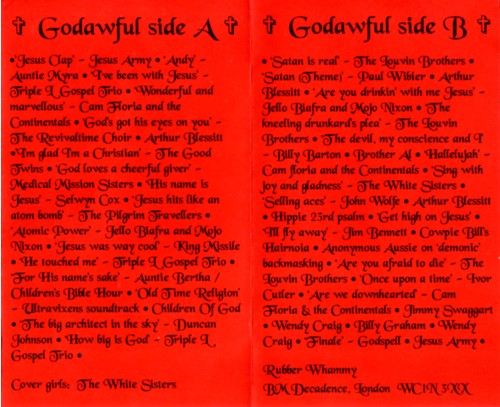 ✞ Godawful side A ✞
• 'Jesus Clap' - Jesus Army • 'Andy' -
Auntie Myra • 'I've been with Jesus' -
Triple L Gospel Trio • 'Wonderful and
marvellous' - Cam Floria and the
Continentals • 'God's got his eyes on you' -
The Revivaltime Choir • Arthur Blessitt
• 'I'm glad I'm a Christian' - The Good
Twins • 'God loves a cheerful giver' -
Medical Mission Sisters • 'His name is
Jesus' - Selwyn Cox • 'Jesus hits like an
atom bomb' - The Pilgrim Travellers •
'Atomic Power' - Jello Biafra and Mojo
Nixon • 'Jesus was way cool' - King Missile
• 'He touched me' - Triple L Gospel Trio •
'For His name's sake' - Auntie Bertha /
Children's Bible Hour • 'Old Time Religion'
- Ultravixens soundtrack • Children Of God
• 'The big architect in the sky' - Duncan
Johnson • 'How big is God' - Triple L
Gospel Trio •
Cover girls: The White Sisters
✞ Godawful side B ✞
• 'Satan is real' - The Louvin Brothers •
'Satan (Theme)' - Paul Wibier • Arthur
Blessitt • 'Are you drinkin' with me Jesus' -
Jello Biafra and Mojo Nixon • 'The
kneeling drunkard's plea' - The Louvin
Brothers • 'The devil, my conscience and I
- Billy Barton • Brother Al • 'Hallelujah' -
Cam floria and the Continentals • 'Sing with
joy and gladness' - The White Sisters •
'Selling aces' - John Wolfe • Arthur Blessitt
• Hippie 23rd psalm • 'Get high on Jesus' •
'I'll fly away' - Jim Bennett • Cowpie Bill's
Hairnoia • Anonymous Aussie on 'demonic'
backmasking • 'Are you afraid to die' - The
Louvin Brothers • 'Once upon a time' - Ivor
Cutler • 'Are we downhearted' - Cam
Floria & the Continentals • Jimmy Swaggart
• Wendy Craig • Billy Graham • Wendy
Craig • 'Finale' - Godspell • Jesus Army •
Rubber Whammy
BM Decadence, London WC1N 3XX